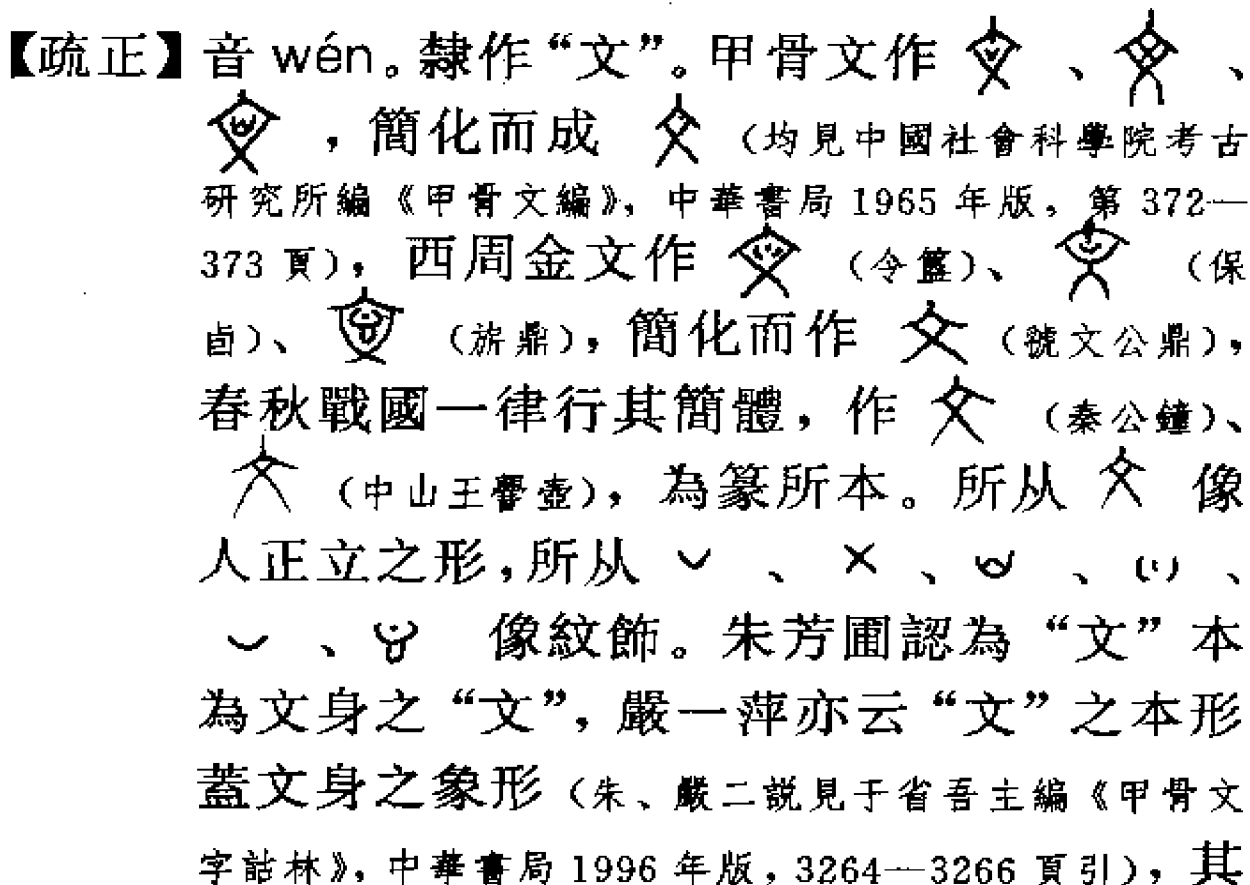 【疏正】音 wén。隸作“文”。甲骨文作 、 、
，簡化而成 （均見中國社會科學院考古
研究所編《甲骨文編》，中華書局 1965 年版，第 372—
373 頁），西周金文作 （令簋）、 （保
卣）、 （旂鼎），簡化而作 （虢文公鼎），
春秋戰國一律行其簡體，作 （秦公鐘）、
（中山王壺），為篆所本。所从 像
人正立之形，所从 、 、 、 、
、 像紋飾。朱芳圃認為“文”本
為文身之“文”，嚴一萍亦云“文”之本形
蓋文身之象形（朱、嚴二説見于省吾主編《甲骨文
字詁林》，中華書局 1996 年版，3264—3266 頁引），其